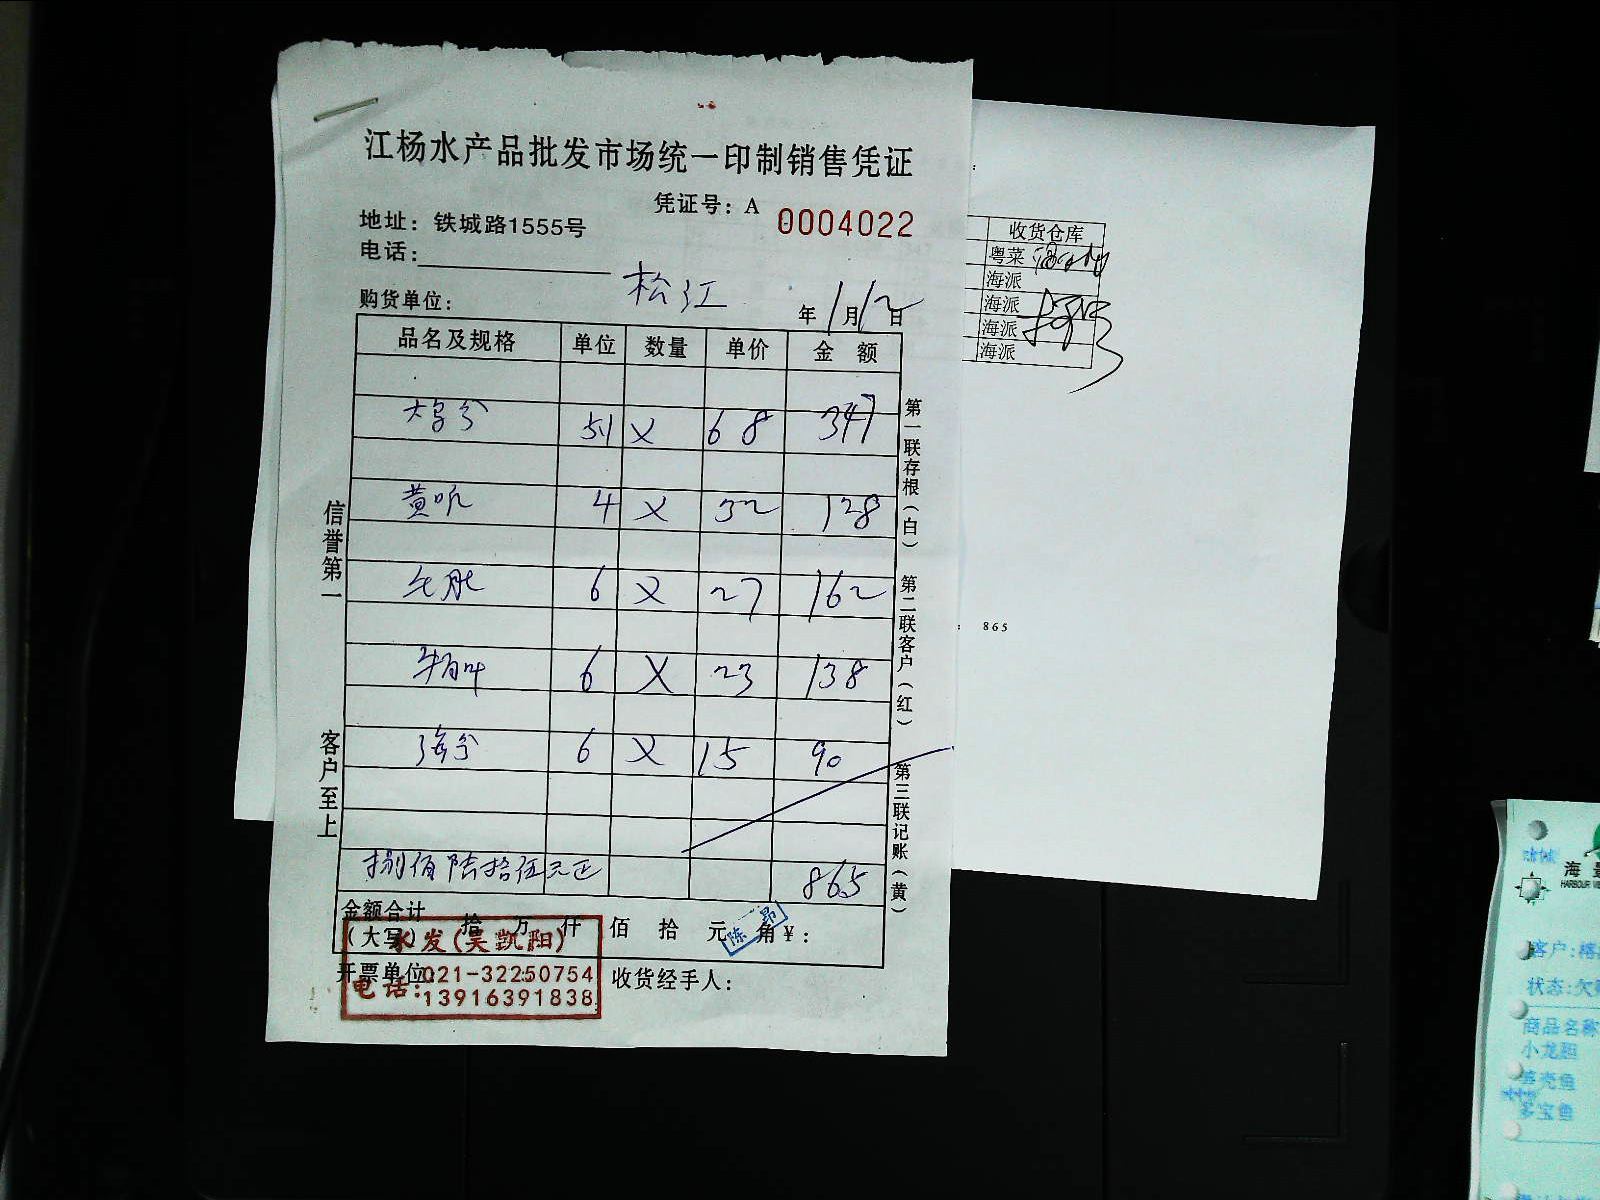 江杨水产品批发市场统一印制销售凭证
凭证号：A 0004022
地址：铁城路1555号
电话：
购货单位： 松江 年1月12日
品名及规格 单位 数量 单价 金 额
51 X 68 347
黄 4 X 32 128
6 X 27 162
牛百叶 6 X 23 138
6 X 15 90
捌佰陆拾伍元正 865
金额合计（大写） 拾 万 仟 佰 拾 元 角 ¥：
陈 昂
开票单位： 收货经手人：
水发(吴凯阳)
电话：021-32250754
13916391838
信誉第一
客户至上
第一联存根（白）
第二联客户（红）
第三联记账（黄）
收货仓库
粤菜
海派
海派
海派
海派
： 865
海景
HARBOUR VIE
客户：
状态：欠
商品名称
小龙胆
笋壳鱼
多宝鱼